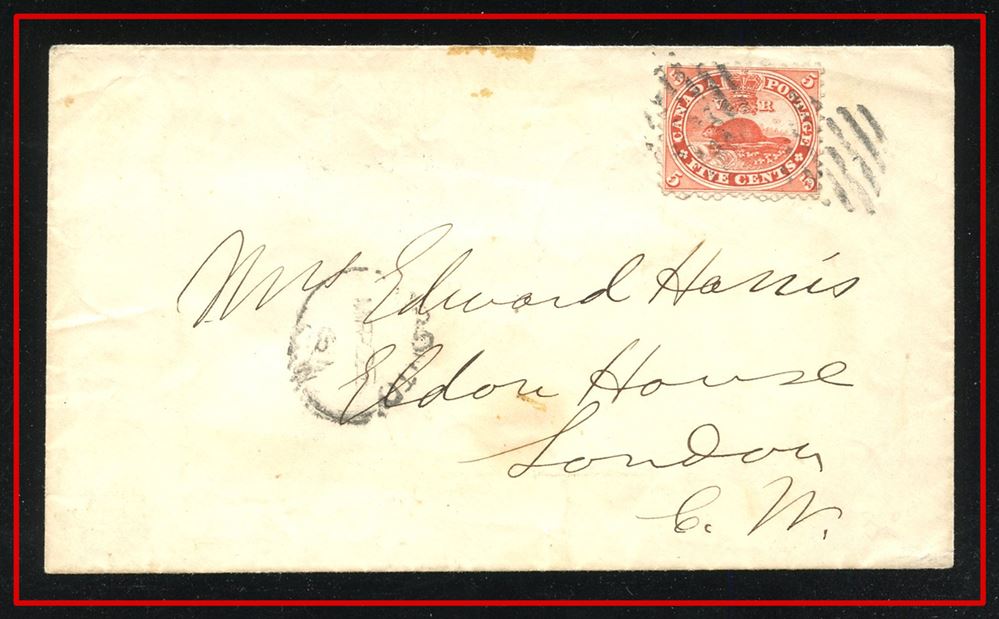 5 5
CANADA POSTAGE
V R
FIVE CENTS
5 5
Mrs Edward Harris
Eldon House
London
C. W.